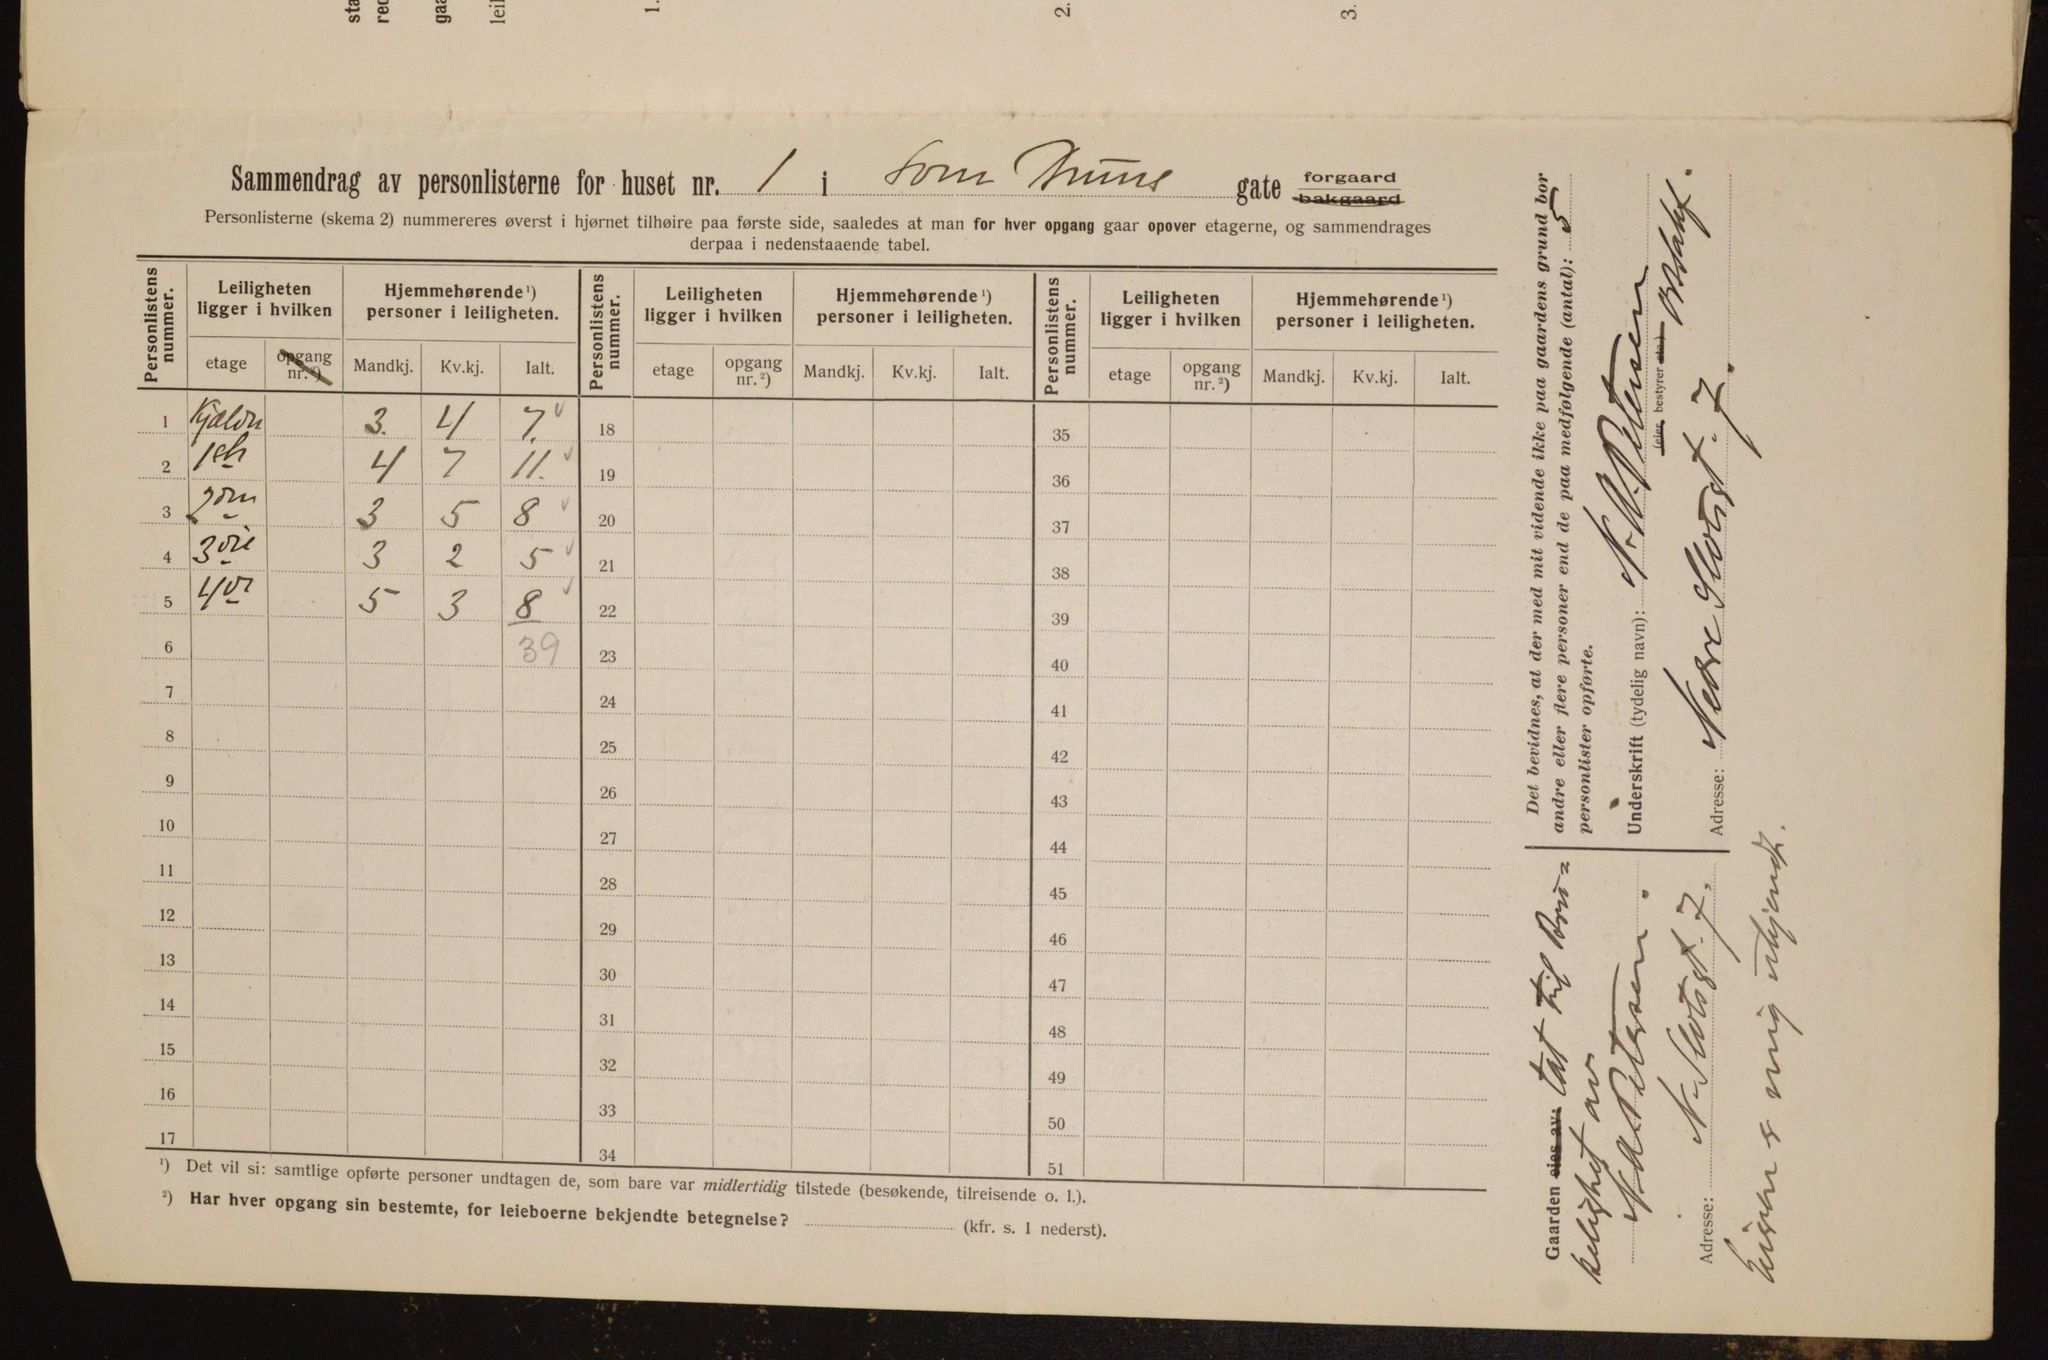 sta
red
gaa
leil
1.
2.
3.
Sammendrag av personlisterne for huset nr. 1 i Sorn Truns gate forgaard
bakgaard
Personlisterne (skema 2) nummereres øverst i hjørnet tilhøire paa første side, saaledes at man for hver opgang gaar opover etagerne, og sammendrages
derpaa i nedenstaaende tabel.
Personlistens nummer. Leiligheten ligger i hvilken Hjemmehørende ¹) personer i leiligheten. Personlistens nummer. Leiligheten ligger i hvilken Hjemmehørende ¹) personer i leiligheten. Personlistens nummer. Leiligheten ligger i hvilken Hjemmehørende ¹) personer i leiligheten.
etage opgang nr. ²) Mandkj. Kv.kj. Ialt. etage opgang nr. ²) Mandkj. Kv.kj. Ialt. etage opgang nr. ²) Mandkj. Kv.kj. Ialt.
1 Kjælder 3. 4 7. 18 35
2 1ste 4 7 11. 19 36
3 2den 3 5 8 20 37
4 3die 3 2 5 21 38
5 4de 5 3 8 22 39
6 39 23 40
7 24 41
8 25 42
9 26 43
10 27 44
11 28 45
12 29 46
13 30 47
14 31 48
15 32 49
16 33 50
17 34 51
¹) Det vil si: samtlige opførte personer undtagen de, som bare var midlertidig tilstede (besøkende, tilreisende o. l.).
²) Har hver opgang sin bestemte, for leieboerne bekjendte betegnelse? (kfr. s. 1 nederst).
Det bevidnes, at der med mit vidende ikke paa gaardens grund bor
andre eller flere personer end de paa medfølgende (antal): 5
personlister opførte.
Underskrift (tydelig navn): N. A. Petersen
(eier bestyrer etc.)
Adresse: Nedre Slotsgt. 7.
Gaarden eies av: tat til brug=
kelighet av
N A Petersen.
Adresse: N. Slotsgt. 7.
Eieren er mig ubekjendt.